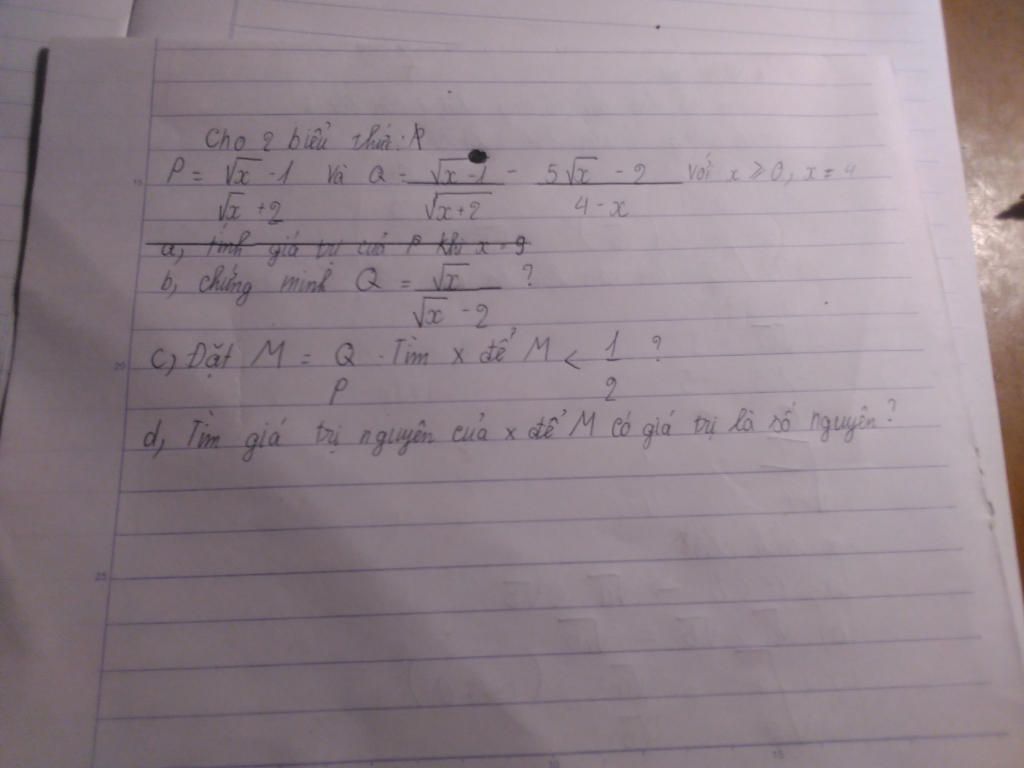 Cho 2 biểu thức: P
P = √x - 1 và Q = √x-1 - 5√x - 2 với x ≥ 0, x = 4
√x + 2 √x+2 4 - x
a, Tính giá trị của P khi x = 9
b, chứng minh Q = √x ?
√x - 2
c, Đặt M = Q . Tìm x để M < 1 ?
P 2
d, Tìm giá trị nguyên của x để M có giá trị là số nguyên?
20
25